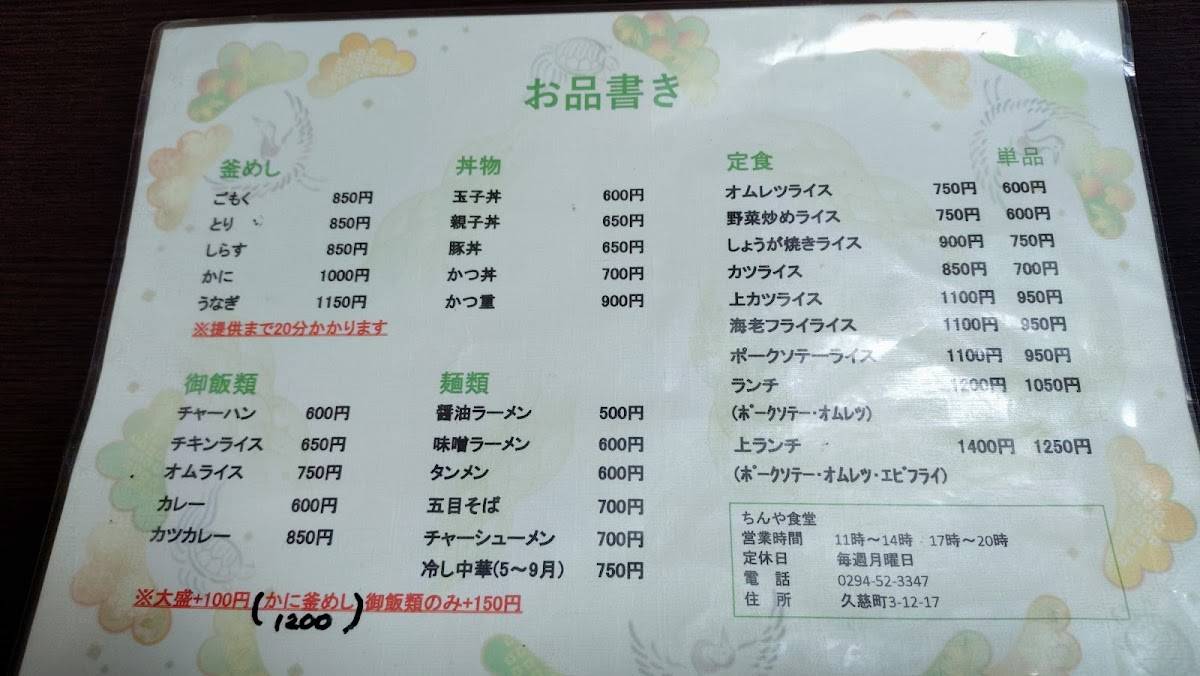 お品書き
釜めし
ごもく 850円
とり 850円
しらす 850円
かに 1000円
うなぎ 1150円
※提供まで20分かかります
丼物
玉子丼 600円
親子丼 650円
豚丼 650円
かつ丼 700円
かつ重 900円
定食 単品
オムレツライス 750円 600円
野菜炒めライス 750円 600円
しょうが焼きライス 900円 750円
カツライス 850円 700円
上カツライス 1100円 950円
海老フライライス 1100円 950円
ポークソテーライス 1100円 950円
ランチ 1200円 1050円
(ﾎﾟｰｸソテー・オムレツ)
上ランチ 1400円 1250円
(ﾎﾟｰｸソテー・オムレツ・エビフライ)
御飯類
チャーハン 600円
チキンライス 650円
オムライス 750円
カレー 600円
カツカレー 850円
麺類
醤油ラーメン 500円
味噌ラーメン 600円
タンメン 600円
五目そば 700円
チャーシューメン 700円
冷し中華(5～9月) 750円
※大盛+100円(かに釜めし)御飯類のみ+150円
1200
ちんや食堂
営業時間 11時～14時 17時～20時
定休日 毎週月曜日
電話 0294-52-3347
住所 久慈町3-12-17